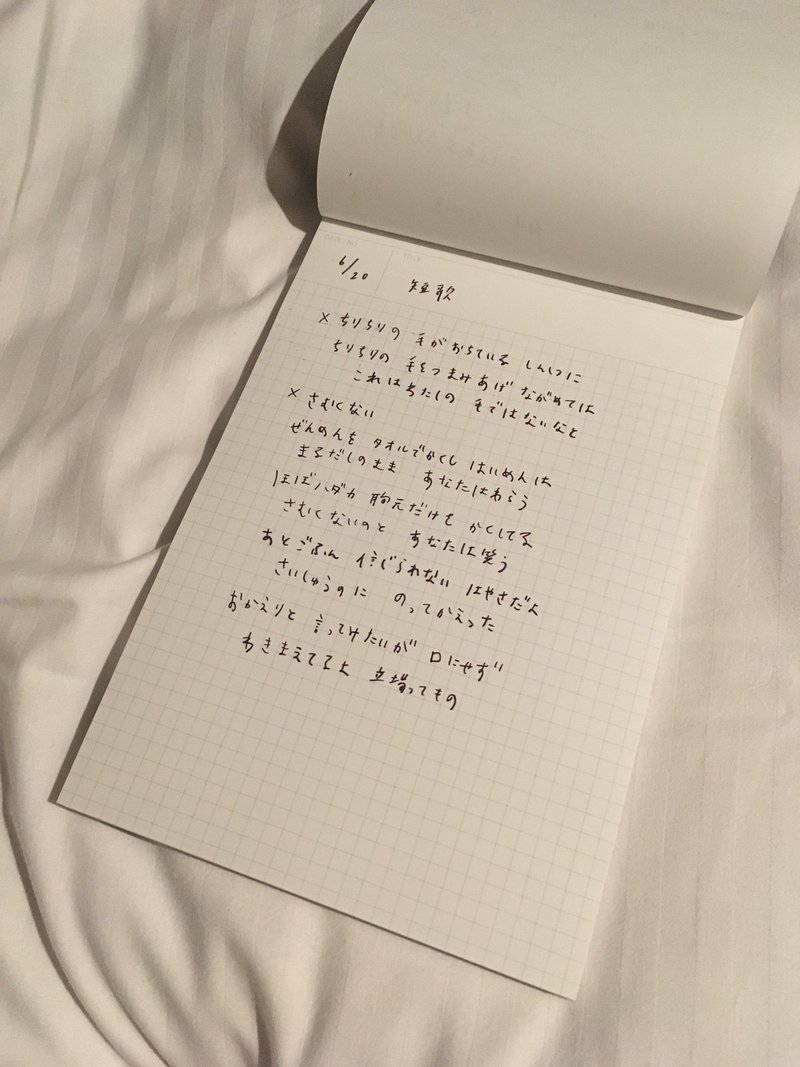 6/20
短歌
× ちりちりの 毛がおちている しんしつに
ちりちりの 毛をつまみあげ ながめては
これはわたしの 毛ではないなと
× さむくない
ぜんめんを タオルでかくし はいめんは
まるだしのまま あなたはわらう
ほぼハダカ 胸元だけを かくしてる
さむくないのと あなたは笑う
あとごふん 信じられない はやさだよ
さいしゅうのに のってかえった
おかえりと 言ってみたいが 口にせず
わきまえてるよ 立場ってもの